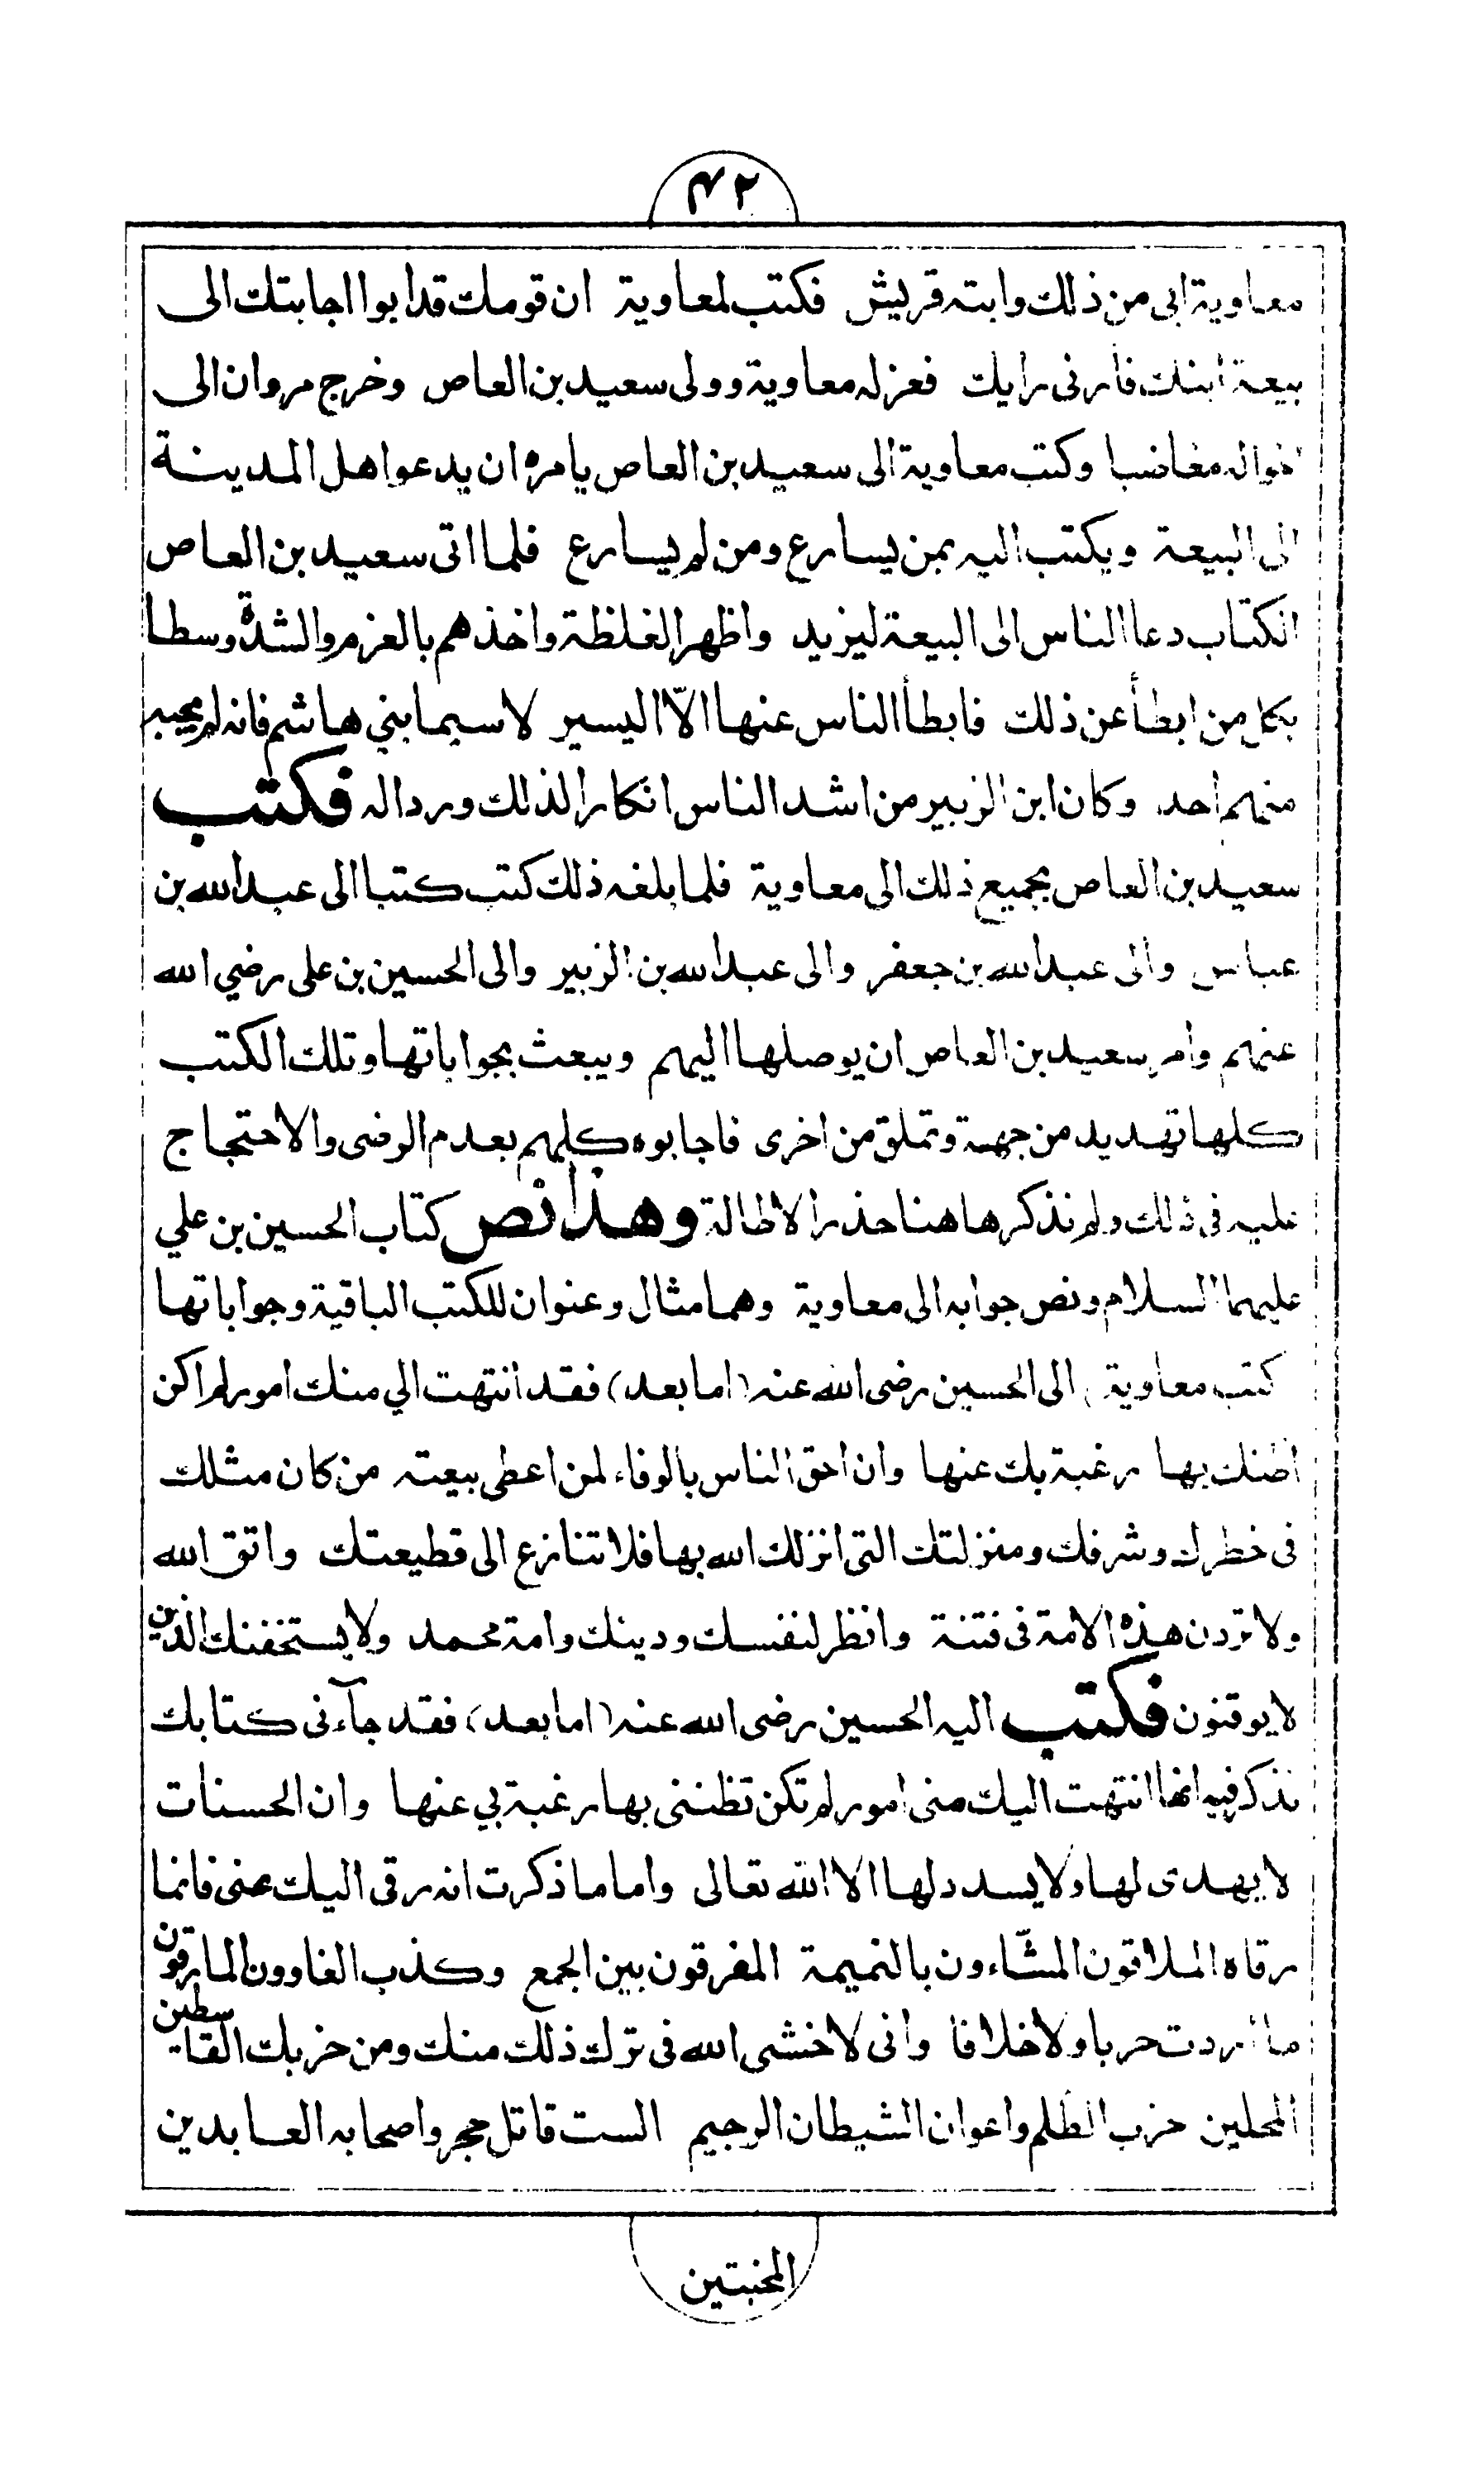 ٤٢
معاوية ابى من ذلك وابته قريش فكتب لمعاوية ان قومك قد ابوا اجابتك الى
بيعة ابنك فأرنى رايك فعزله معاوية وولى سعيد بن العاص وخرج مروان الى
اخواله مغاضبا وكتب معاوية الى سعيد بن العاص يامره ان يدعوا هل المدينة
الى البيعة ويكتب اليه بمن يسارع ومن لم يسارع فلما اتى سعيد بن العاص
الكتاب دعا الناس الى البيعة ليزيد واظهر الغلظة واخذهم بالعزم والشدة وسطا
بكل من ابطأ عن ذلك فابطأ الناس عنها الّا اليسير لا سيما بني هاشم فانه لم يجبه
منهم احد. وكان ابن الزبير من اشد الناس انكارا لذلك وردا له فكتب
سعيد بن العاص بجميع ذلك الى معاوية فلما بلغه ذلك كتب كتبا الى عبد الله بن
عباس والى عبد الله بن جعفر والى عبد الله بن الزبير والى الحسين بن على رضي الله
عنهم وامر سعيد بن العاص ان يوصلها اليهم ويبعث بجواباتها وتلك الكتب
كلها تهديد من جهة وتملق من اخرى فاجابوه كلهم بعدم الرضى والاحتجاج
عليه فى ذلك ولم نذكرها هنا حذر الاطالة وهذا نص كتاب الحسين بن علي
عليهما السلام ونص جوابه الى معاوية وهما مثال وعنوان للكتب الباقية وجواباتها
كتب معاوية الى الحسين رضى الله عنه (اما بعد) فقد انتهت الي منك امور لم اكن
اظنك بها رغبة بك عنها وان احق الناس بالوفاء لمن اعطى بيعته من كان مثلك
فى خطرك وشرفك ومنزلتك التى انزلك الله بها فلا تنازع الى قطيعتك واتق الله
ولا تردن هذه الامة فى فتنة وانظر لنفسك ودينك وامة محمد ولا يستخفنك الذين
لا يوقنون فكتب اليه الحسين رضى الله عنه (اما بعد) فقد جآءنى كتابك
تذكر فيه انها انتهت اليك منى امور لم تكن تظننى بها رغبة بي عنها وان الحسنات
لا يهدى لها ولا يسدد لها الا الله تعالى واما ما ذكرت انه رقى اليك عنى فانما
رقاه الملاقون المشّاءون بالنميمة المفرقون بين الجمع وكذب الغاوون المارقون
ما اردت حربا ولا خلافا وانى لاخشى الله فى ترك ذلك منك ومن حزبك القاسطين
المحلين حزب الظلم واعوان الشيطان الرجيم الست قاتل حجر واصحابه العابدين
المخبتين